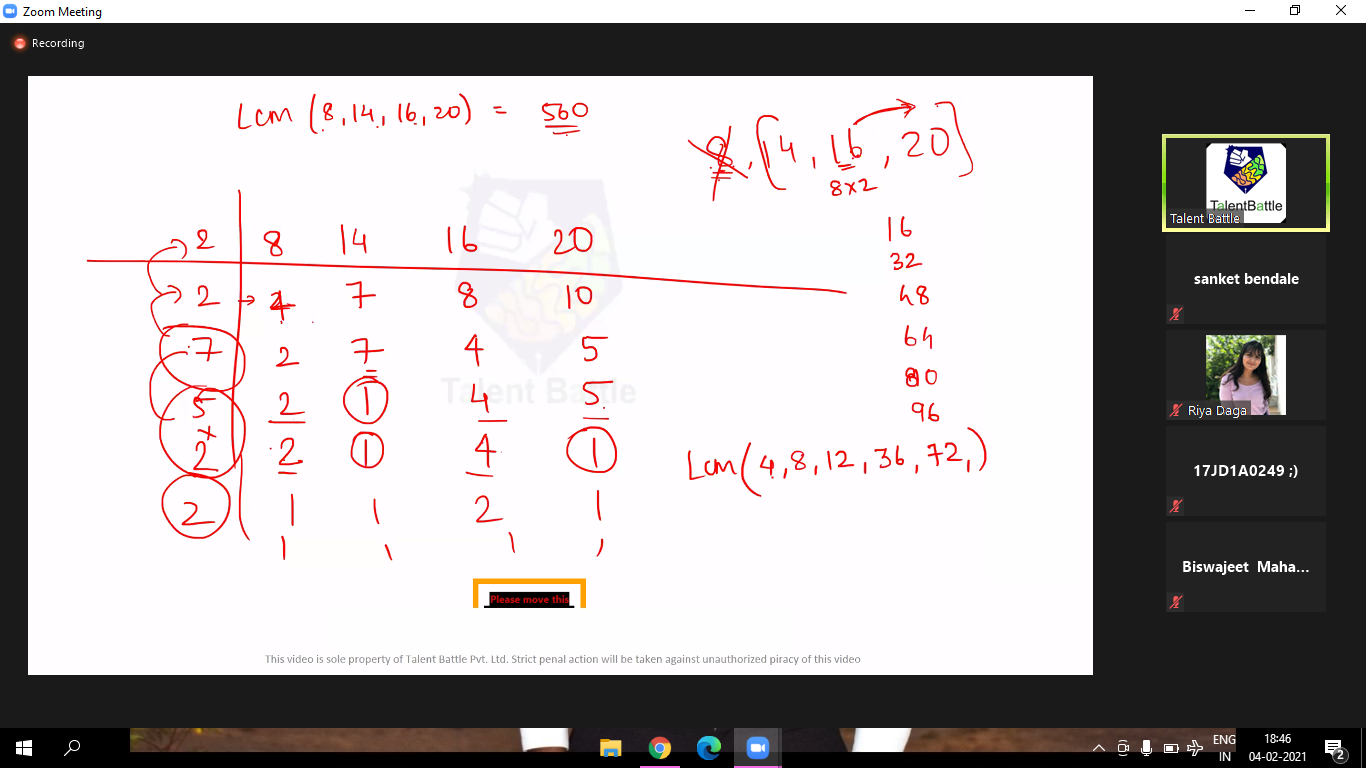 Zoom Meeting
Recording
Lcm (8,14,16,20) = 560
8, [14, 16, 20]
8x2
2 8 14 16 20
2 4 7 8 10
7 2 7 4 5
5 2 1 4 5
x
2 2 1 4 1
2 1 1 2 1
1 1 1 1
16
32
48
64
80
96
Lcm (4,8,12,36,72,)
Talent Battle
Please move this
This video is sole property of Talent Battle Pvt. Ltd. Strict penal action will be taken against unauthorized piracy of this video
TalentBattle
Talent Battle
sanket bendale
Riya Daga
17JD1A0249 ;)
Biswajeet Maha...
ENG
IN
18:46
04-02-2021
2